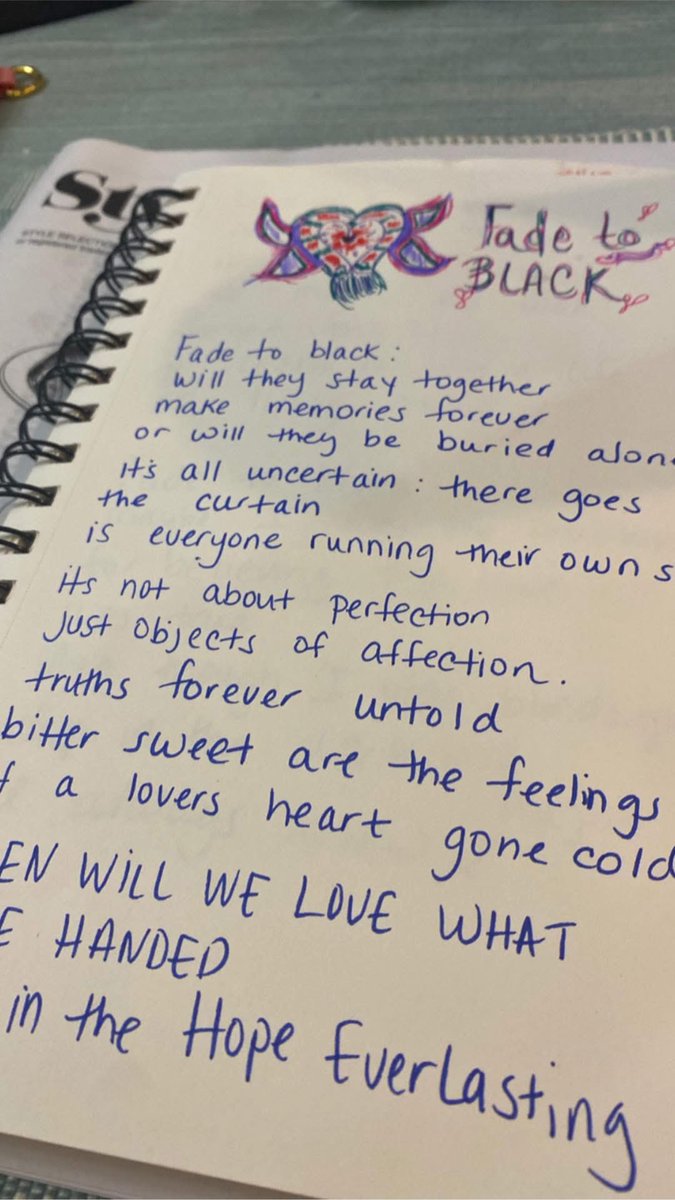 Fade to
BLACK
Fade to black:
will they stay together
make memories forever
or will they be buried alon
it's all uncertain: there goes
the curtain
is everyone running their own s
its not about perfection
just objects of affection.
truths forever untold
bitter sweet are the feelings
f a lovers heart gone cold
EN WILL WE LOVE WHAT
E HANDED
in the Hope Everlasting